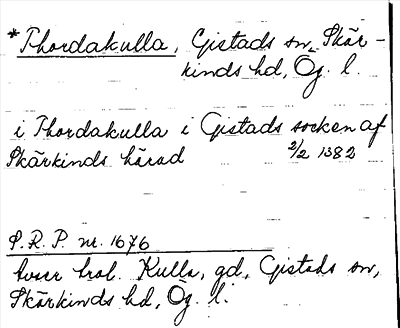 *Thordakulla, Gistads sn, Skär-
kinds hd, Ög. l.
i Thordakulla i Gistads socken af
Skärkinds härad 2/2 1382
S.R.P. nr. 1676
hvar trol. Kulla, gd, Gistads sn,
Skärkinds hd, Ög. l.